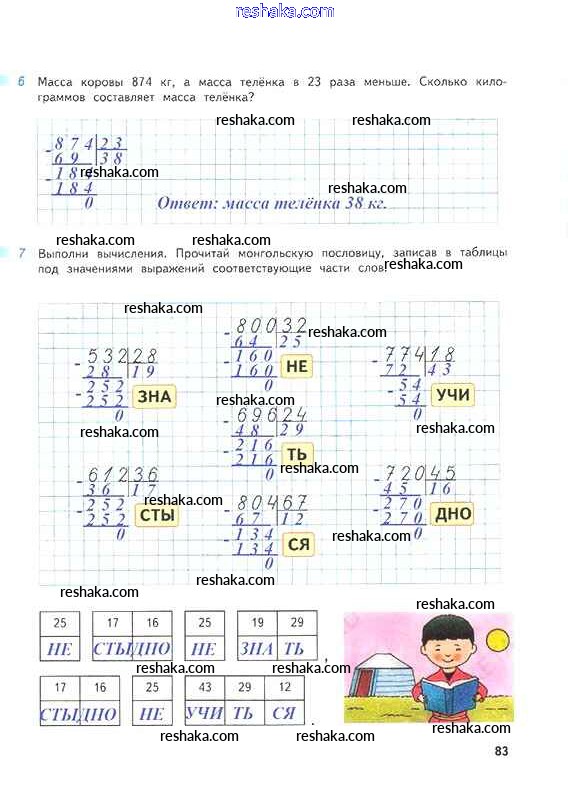 reshaka.com
6 Масса коровы 874 кг, а масса телёнка в 23 раза меньше. Сколько кило-
граммов составляет масса телёнка?
reshaka.com
- 874 23
69 38
reshaka.com
- 184
184
reshaka.com
0
Ответ: масса телёнка 38 кг.
reshaka.com
reshaka.com
7 Выполни вычисления. Прочитай монгольскую пословицу, записав в таблицы
под значениями выражений соответствующие части слов.
reshaka.com
reshaka.com
- 532 28
28 19
- 252
252
0
ЗНА
- 800 32
64 25
- 160
160
0
НЕ
reshaka.com
- 774 18
72 43
- 54
54
0
УЧИ
reshaka.com
reshaka.com
- 696 24
48 29
- 216
216
0
ТЬ
reshaka.com
- 612 36
36 17
- 252
252
0
СТЫ
reshaka.com
- 804 67
67 12
- 134
134
0
СЯ
reshaka.com
- 720 45
45 16
- 270
270
0
ДНО
reshaka.com
reshaka.com
reshaka.com
reshaka.com
reshaka.com
25 17 16 25 19 29
НЕ СТЫ ДНО НЕ ЗНА ТЬ ,
reshaka.com
17 16 25 43 29 12
СТЫ ДНО НЕ УЧИ ТЬ СЯ .
reshaka.com
reshaka.com
83